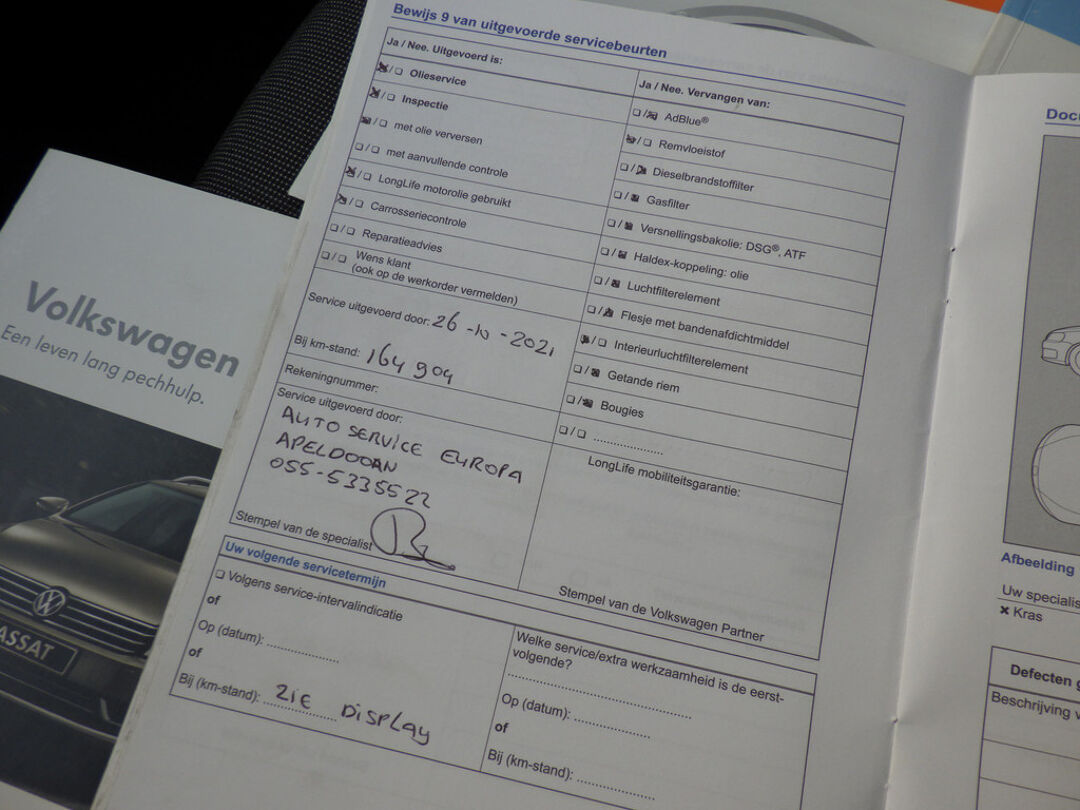 Bewijs 9 van uitgevoerde servicebeurten
Ja / Nee. Uitgevoerd is:
Olieservice
Inspectie
met olie verversen
met aanvullende controle
LongLife motorolie gebruikt
Carrosseriecontrole
Reparatieadvies
Wens klant
(ook op de werkorder vermelden)
Service uitgevoerd door: 26-10-2021
Bij km-stand: 164 904
Rekeningnummer:
Service uitgevoerd door:
AUTO SERVICE EUROPA
APELDOOAN
055-5335522
Stempel van de specialist
Ja / Nee. Vervangen van:
AdBlue®
Remvloeistof
Dieselbrandstoffilter
Gasfilter
Versnellingsbakolie: DSG®, ATF
Haldex-koppeling: olie
Luchtfilterelement
Flesje met bandenafdichtmiddel
Interieurluchtfilterelement
Getande riem
Bougies
....................
LongLife mobiliteitsgarantie:
Stempel van de Volkswagen Partner
Uw volgende servicetermijn
Volgens service-intervalindicatie
of
Op (datum): ....................
of
Bij (km-stand): ZIE DISPLAY
Welke service/extra werkzaamheid is de eerst-
volgende?
Op (datum): ....................
of
Bij (km-stand): ....................
Volkswagen
Een leven lang pechhulp.
ASSAT
Docu
Afbeelding
Uw specialis
Kras
Defecten g
Beschrijving v